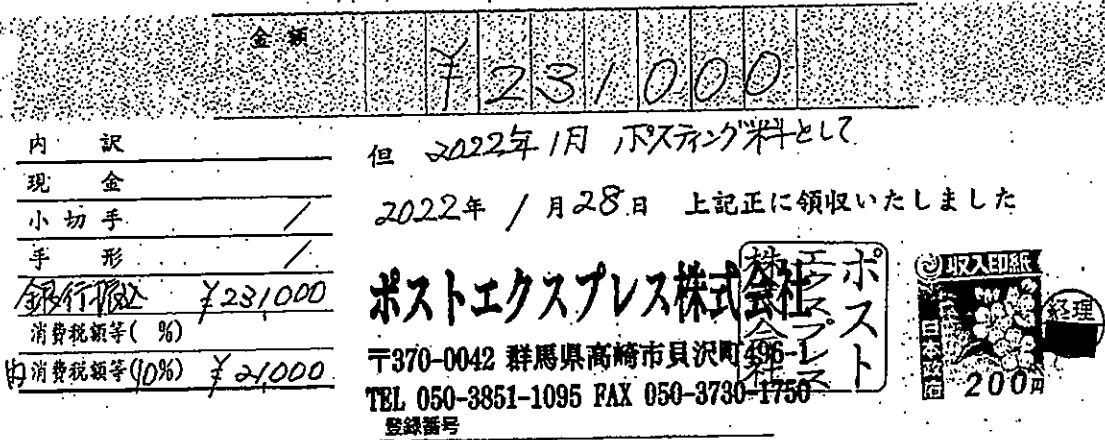 金額 ¥231000
内 訳
現 金
小切手 /
手 形 /
銀行振込 ¥231,000
消費税額等( %)
内消費税額等(10%) ¥21,000
但 2022年1月 ポスティング料として
2022年 1月28日 上記正に領収いたしました
ポストエクスプレス株式会社
〒370-0042 群馬県高崎市貝沢町496-1
TEL 050-3851-1095 FAX 050-3730-1750
登録番号
ポスト
エクスプレス
株式会社
収入印紙
日本政府
200円
経理